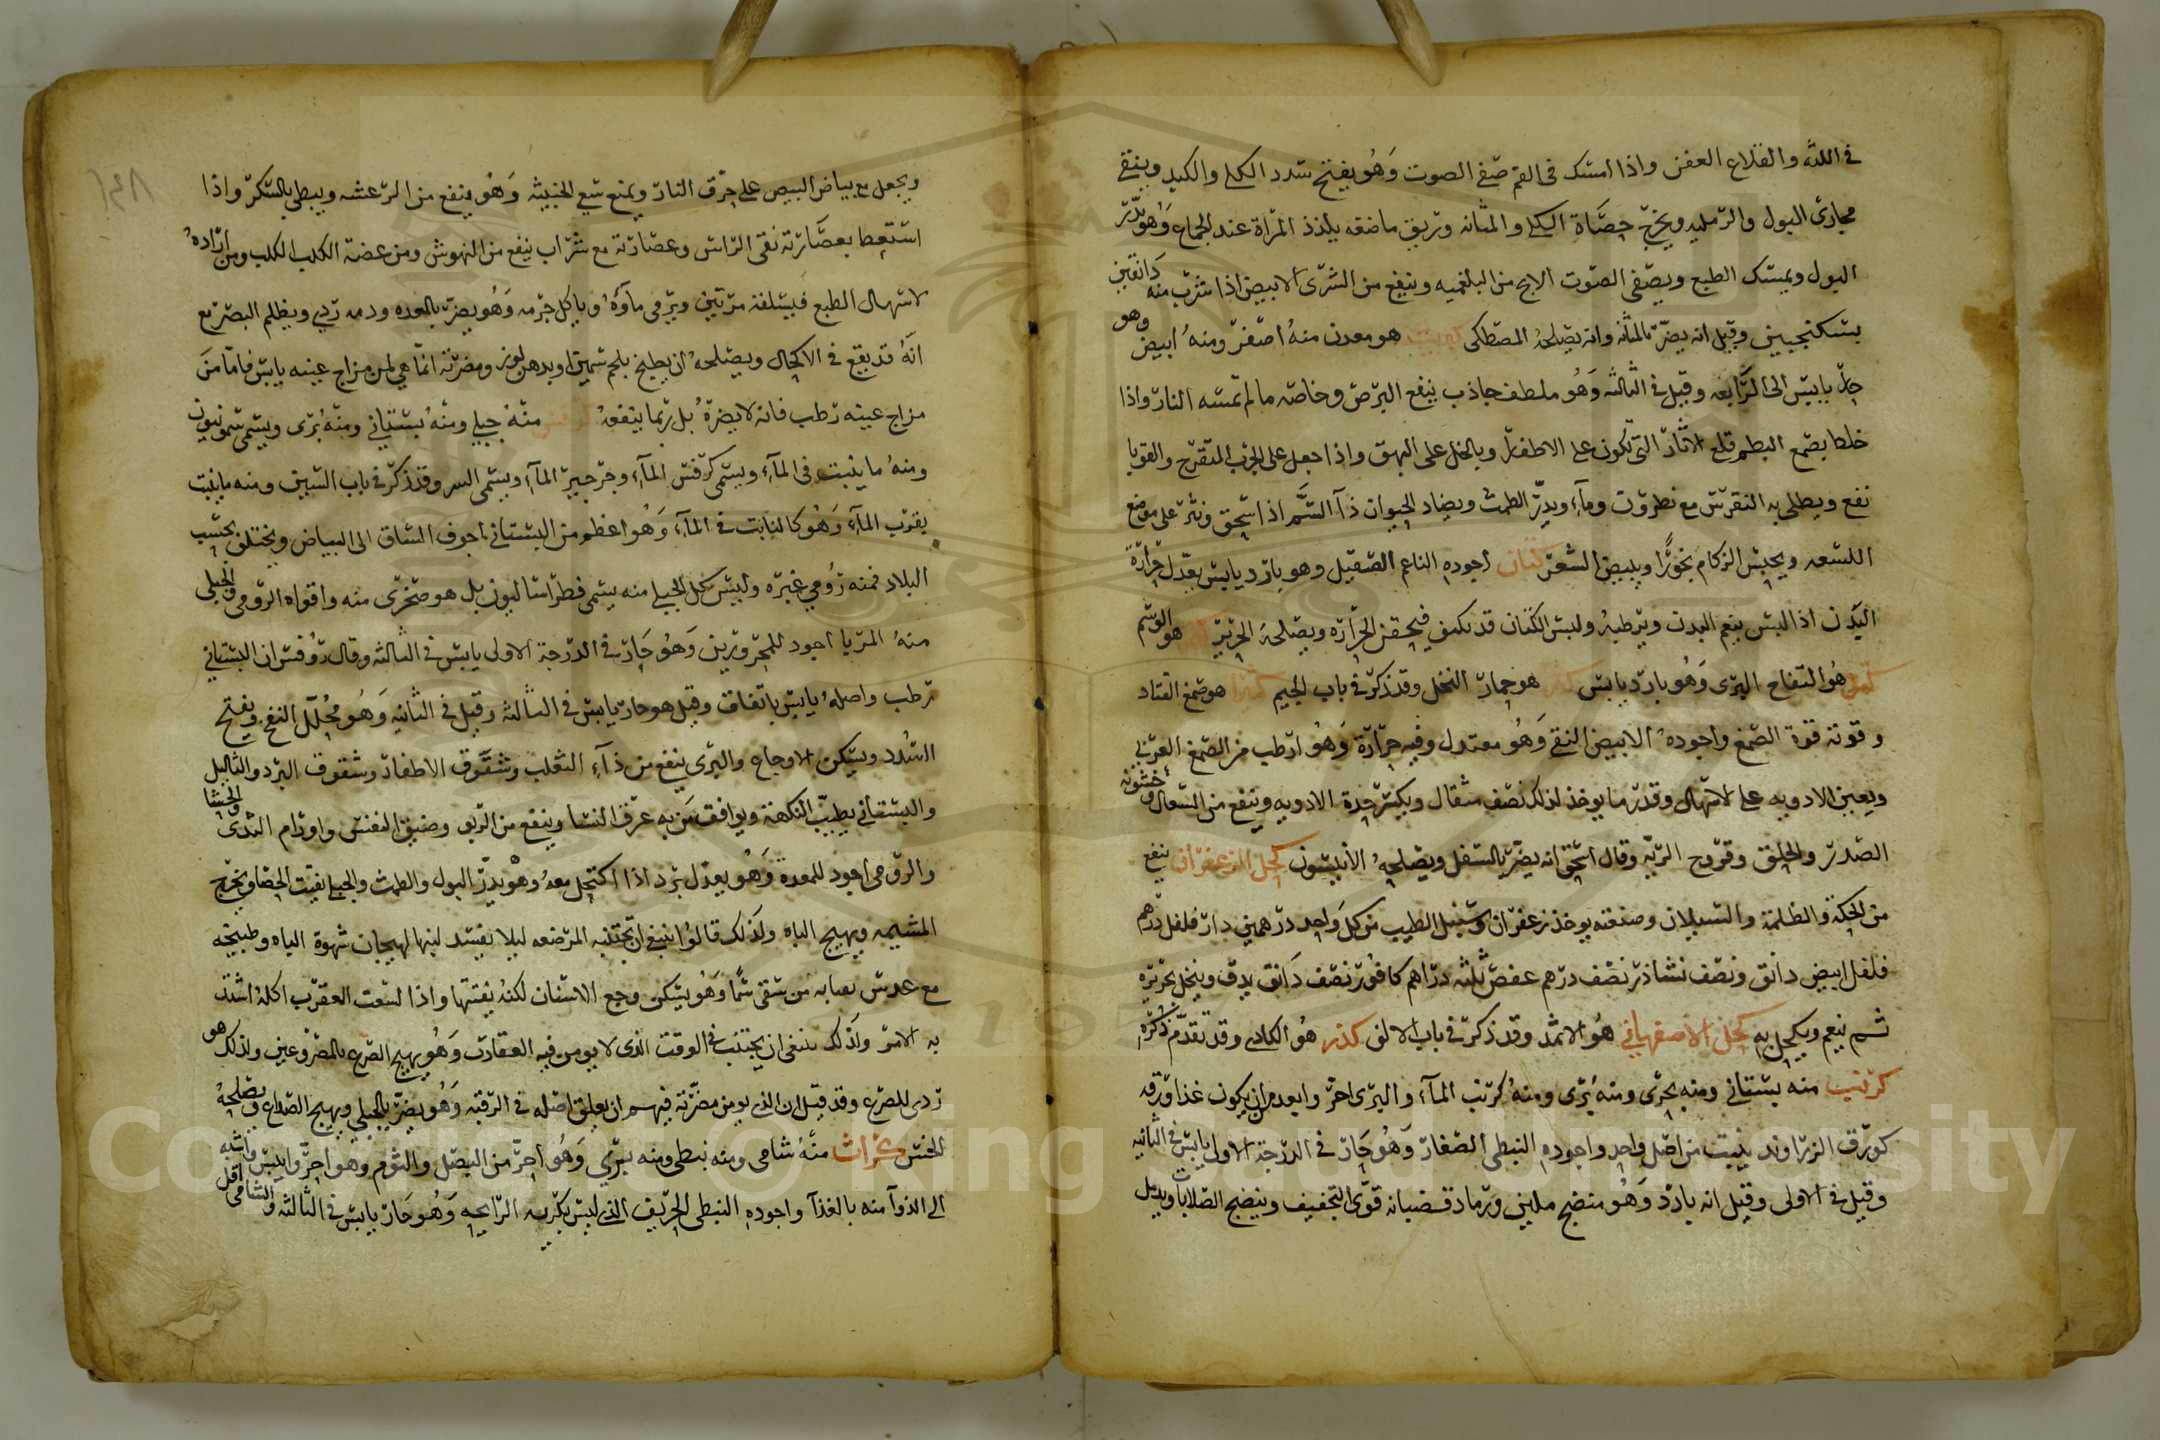 في اللثه والقلاع العفن واذا امسك في الفم صفي الصوت وهو يفتح سدد الكلي والكبد وينقي
مجاري البول والرمليه ويخرج حصاة الكلي والمثانه وريق ماضغه يلذذ المراة عند الجماع وهو يدر
البول ويمسك الطبع ويصفي الصوت الابح من البلغميه وينفع من الشري الابيض اذا شرب منه دانقين
بسكنجبين وقيل انه يضر بالمثانه وانه يصلحه المصطكي كبريت هو معدن منه اصفر ومنه ابيض وهو
حار يابس الي الرابعه وقيل في الثالثه وهو ملطف جاذب ينفع البرص وخاصه ما لم تمسه النار واذا
خلط بصمغ البطم قلع الاثار التي تكون علي الاظفار وبالخل علي البهق واذا جعل علي الجرب المتقرح والقوبا
نفع ويطلي به النقرس مع نطرون وماء ويدر الطمث ويضاد الحيوان ذا السم اذا سحق ونثر علي موضع
اللسعه ويحبس الزكام بخورا ويبيض الشعر كتان اجوده الناعم الصقيل وهو بارد يابس يعدل حرارة
البدن اذا لبس ينعم البدن ويرطبه ولبس الكتان قد يكمن فيحقن الحرارة ويصلحه الحرير هو الوسم
هو التفاح البري وهو بارد يابس هو جمار النخل وقد ذكر في باب الجيم كثيرا هو صمغ القتاد
وقوته قوة الصمغ واجوده الابيض النقي وهو معتدل وفيه حرارة وهو ارطب من الصمغ العربي
ويعين الادويه علي الاسهال وقدر ما يوخذ لذلك نصف مثقال ويكسر حدة الادويه وينفع من السعال وخشونه
الصدر والحلق وقروح الريه وقال اسحق انه يضر بالسفل ويصلحه الانيسون كحل الزعفران ينفع
من الحكة والظلمة والسيلان وصنعته يوخذ زعفران وسنبل الطيب من كل واحد درهمين دار فلفل درهم
فلفل ابيض دانق ونصف نشاذر نصف درهم عفص ثلثه دراهم كافور نصف دانق يدق وينخل بحريره
ثم ينعم ويكحل به كحل الاصفهاني هو الاثمد وقد ذكر في باب الالف كدر هو الكادي وقد تقدم ذكره
كرنب منه بستاني ومنه بحري ومنه بري ومنه كرنب الماء والبري احر وابعد من ان يكون غذا ورقه
كورق الزراوند ينبت من اصل واحد واجوده النبطي الصغار وهو حار في الدرجة الاولي يابس في الثانيه
وقيل في الاولي وقيل انه بارد وهو منضج ملين ورماد قضبانه قوي التجفيف وينضج الصلابات ويدمل
ويجعل مع بياض البيض علي حرق النار ويمنع سعي الخبيثه وهو ينفع من الرعشه ويبطي بالسكر واذا
استعط بعصارته نقي الراس وعصارته مع شراب ينفع من النهوش ومن عضة الكلب الكلب ومن اراده
لاسهال الطبع فيسلقه مرتين ويرمي ماوه وياكل جرمه وهو يضر بالمعده ودمه ردي ويظلم البصر مع
انه قد يقع في الاكحال ويصلحه ان يطبخ بلحم سمين او بدهن لوز ومضرته انما هي لمن مزاج عينيه يابس فاما من
مزاج عينيه رطب فانه لا يضره بل ربما ينفعه كرفس منه جبلي ومنه بستاني ومنه بري ويسمي سمرنيون
ومنه ما ينبت في الماء ويسمي كرفس الماء وجرجير الماء ويسمي السر وقد ذكر في باب السين ومنه ما ينبت
بقرب الماء وهو كالنابت في الماء وهو اعظم من البستاني اجوف الساق الي البياض ويختلف بحسب
البلاد فمنه رومي وغيره وليس كل الجبلي منه يسمي فطراسالينون بل هو صخري منه واقواه الرومي والجبلي
منه المربا اجود للمحرورين وهو حار في الدرجة الاولي يابس في الثالثه وقال روفس ان البستاني
رطب واصله يابس باتفاق وقيل هو حار يابس في الثالثه وقيل في الثانيه وهو محلل النفخ ويفتح
السدد ويسكن الاوجاع والبري ينفع من داء الثعلب وشقوق الاظفار وشقوق البرد والثاليل
والبستاني يطيب النكهة ويوافق من به عرق النسا وينفع من الربو وضيق النفس واورام الثدي والحشا
والرومي اجود للمعدة وهو يعدل برد اذا اكتحل معه وهو يدر البول والطمث والجبلي يفتت الحصا ويخرج
المشيمه ويهيج الباه ولذلك قالوا ينبغي ان تجتنبه المرضعه ليلا يفسد لبنها لهيجان شهوة الباه وطبيخه
مع عدس يعابه من سقي سما وهو يسكن وجع الاسنان لكنه يفتتها واذا لسعت العقرب اكله اشتد
به الامر ولذلك ينبغي ان يجتنب في الوقت الذي لا يومن فيه العقارب وهو يهيج الصرع بالمصروعين ولذلك هو
ردي للصرع وقد قيل ان الذي يومن مضرته فيهم ان يعلق اصله في الرقبه وهو يضر بالحبلي ويهيج الصداع ويصلحه
الخس كراث منه شامي ومنه نبطي ومنه بري وهو احر من البصل والثوم وهو احر وايبس واشبه
الي الدوا منه بالغذا واجوده النبطي الحريف الذي ليس بكريه الرايحه وهو حار يابس في الثالثه والشامي اقل
Copyright © King Saud University